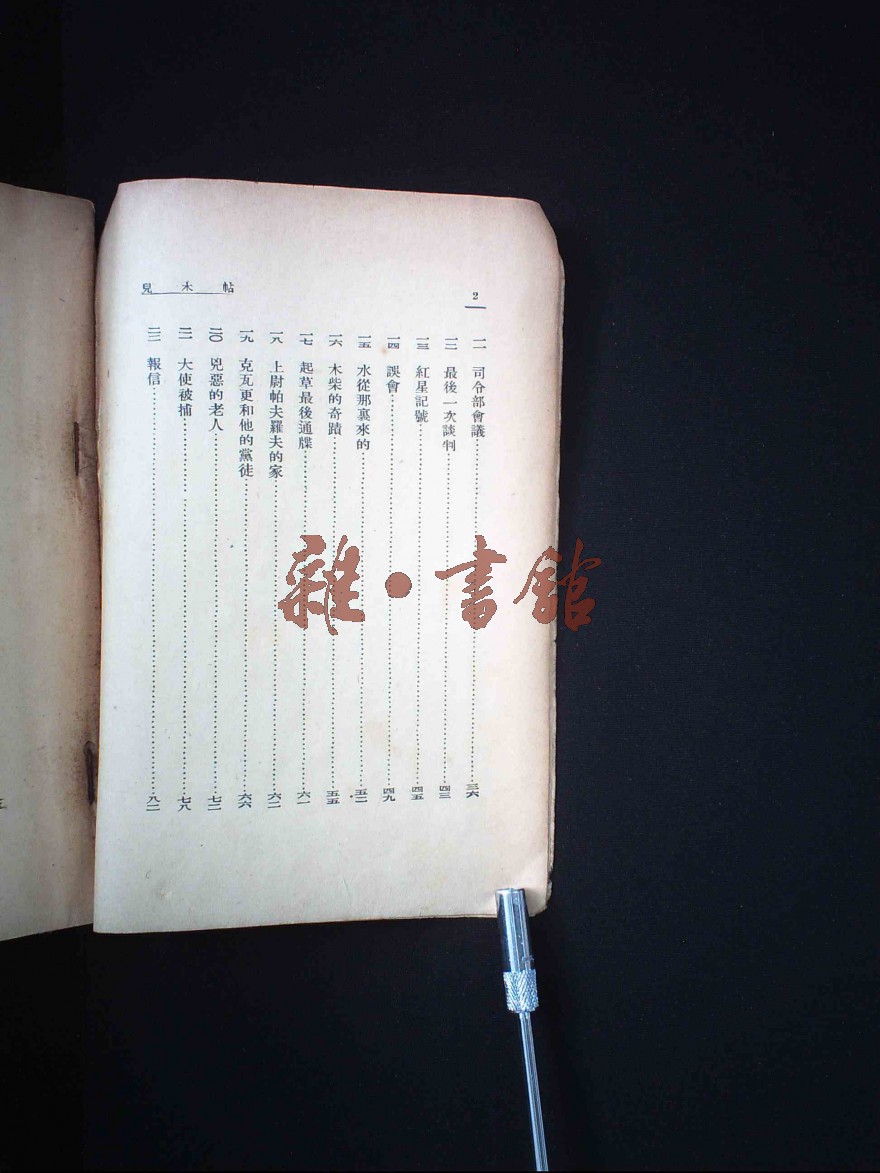 帖木兒
2
一一 司令部會議……三六
一二 最後一次談判……四三
一三 紅星記號……四五
一四 誤會……四九
一五 水從那裏來的……五二
一六 木柴的奇蹟……五五
一七 起草最後通牒……六一
一八 上尉帕夫羅夫的家……六二
一九 克瓦更和他的黨徒……六六
二〇 兇惡的老人……七二
二一 大使被捕……七八
二二 報信……八二
雜·書館